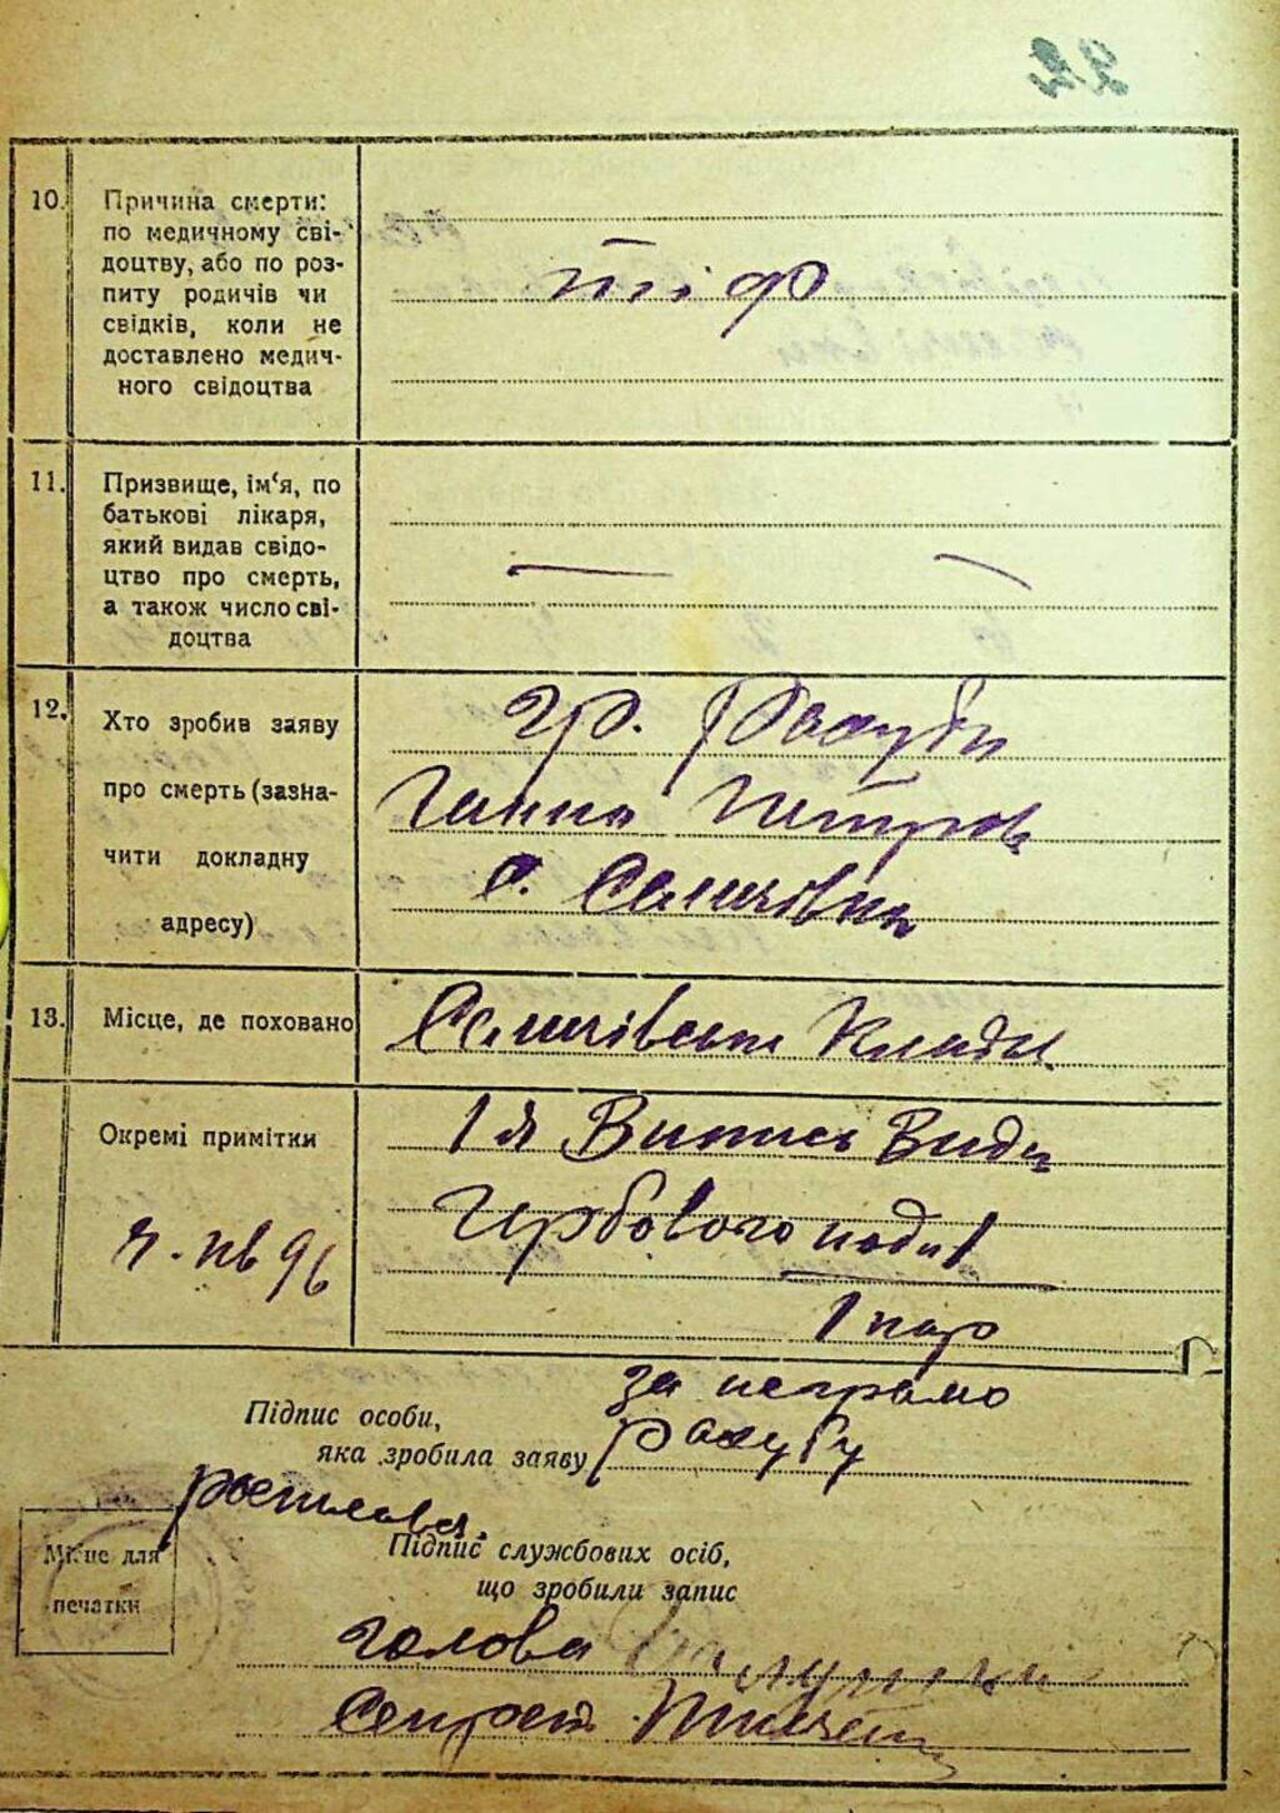 22
10. Причина смерти:
по медичному сві-
доцтву, або по роз-
питу родичів чи
свідків, коли не
доставлено медич-
ного свідоцтва
тіф
11. Призвище, ім'я, по
батькові лікаря,
який видав свідо-
цтво про смерть,
а також число сві-
доцтва
— —
12. Хто зробив заяву
про смерть (зазна-
чити докладну
адресу)
гр. Рахуби
Ганна Петров
с. Селичівка
13. Місце, де поховано
Селичівськ Кладь
Окремі примітки
1 я Випись Вида
Гербового
1 кар
за неграмо
Підпис особи,
яка зробила заяву Рахубу
Місце для
печатки
Підпис службових осіб,
що зробили запис
Голова
Секрет.